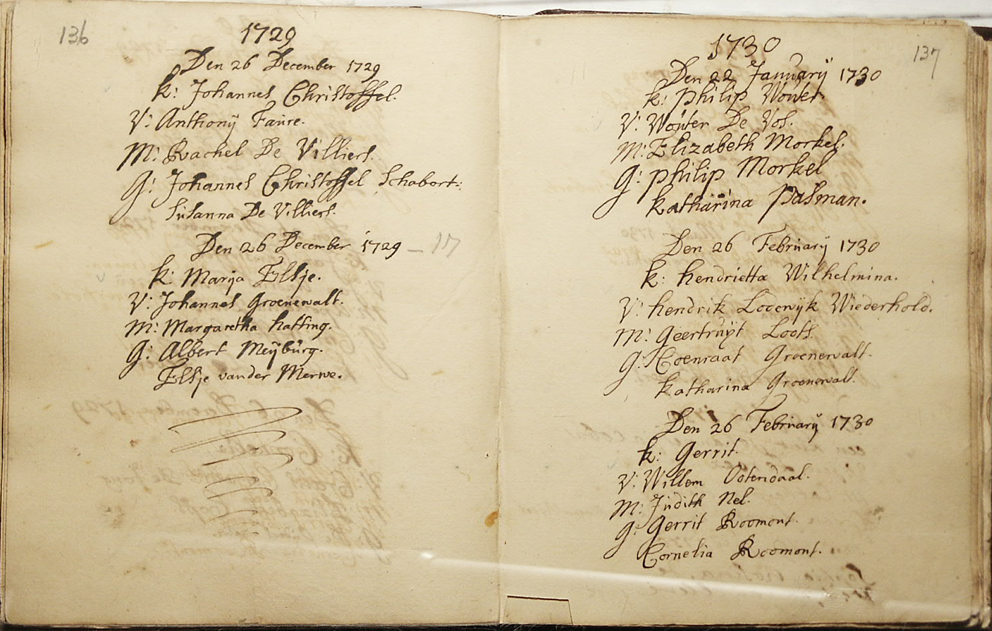 136
1729
Den 26 December 1729
k: Johannes Christoffel.
V: Anthonÿ Faure.
M: Rachel De Villiers.
G: Johannes Christoffel Schabort:
Susanna De Villiers.
Den 26 December 1729 – 17
k: Marya Elsje.
V: Johannes Groenewalt.
M: Margaretha Hatting.
G: Albert Meÿburg.
Elsje vander Merwe.
137
1730
Den 22 Januarÿ 1730
k: Philip Wouter
V: Wouter De Vos.
M: Elizabeth Morkel.
G: Philip Morkel
Katharina Pasman.
Den 26 Februarÿ 1730
k: Hendrietta Wilhelmina.
V: Hendrik Lodewyk Wiederhold.
M: Geertruÿt Loots.
G: Coenraat Groenewalt.
Katharina Groenewalt.
Den 26 Februarÿ 1730
k: Gerrit.
V: Willem Odendaal.
M: Judith Nel.
G: Gerrit Roomont.
Cornelia Roomont.